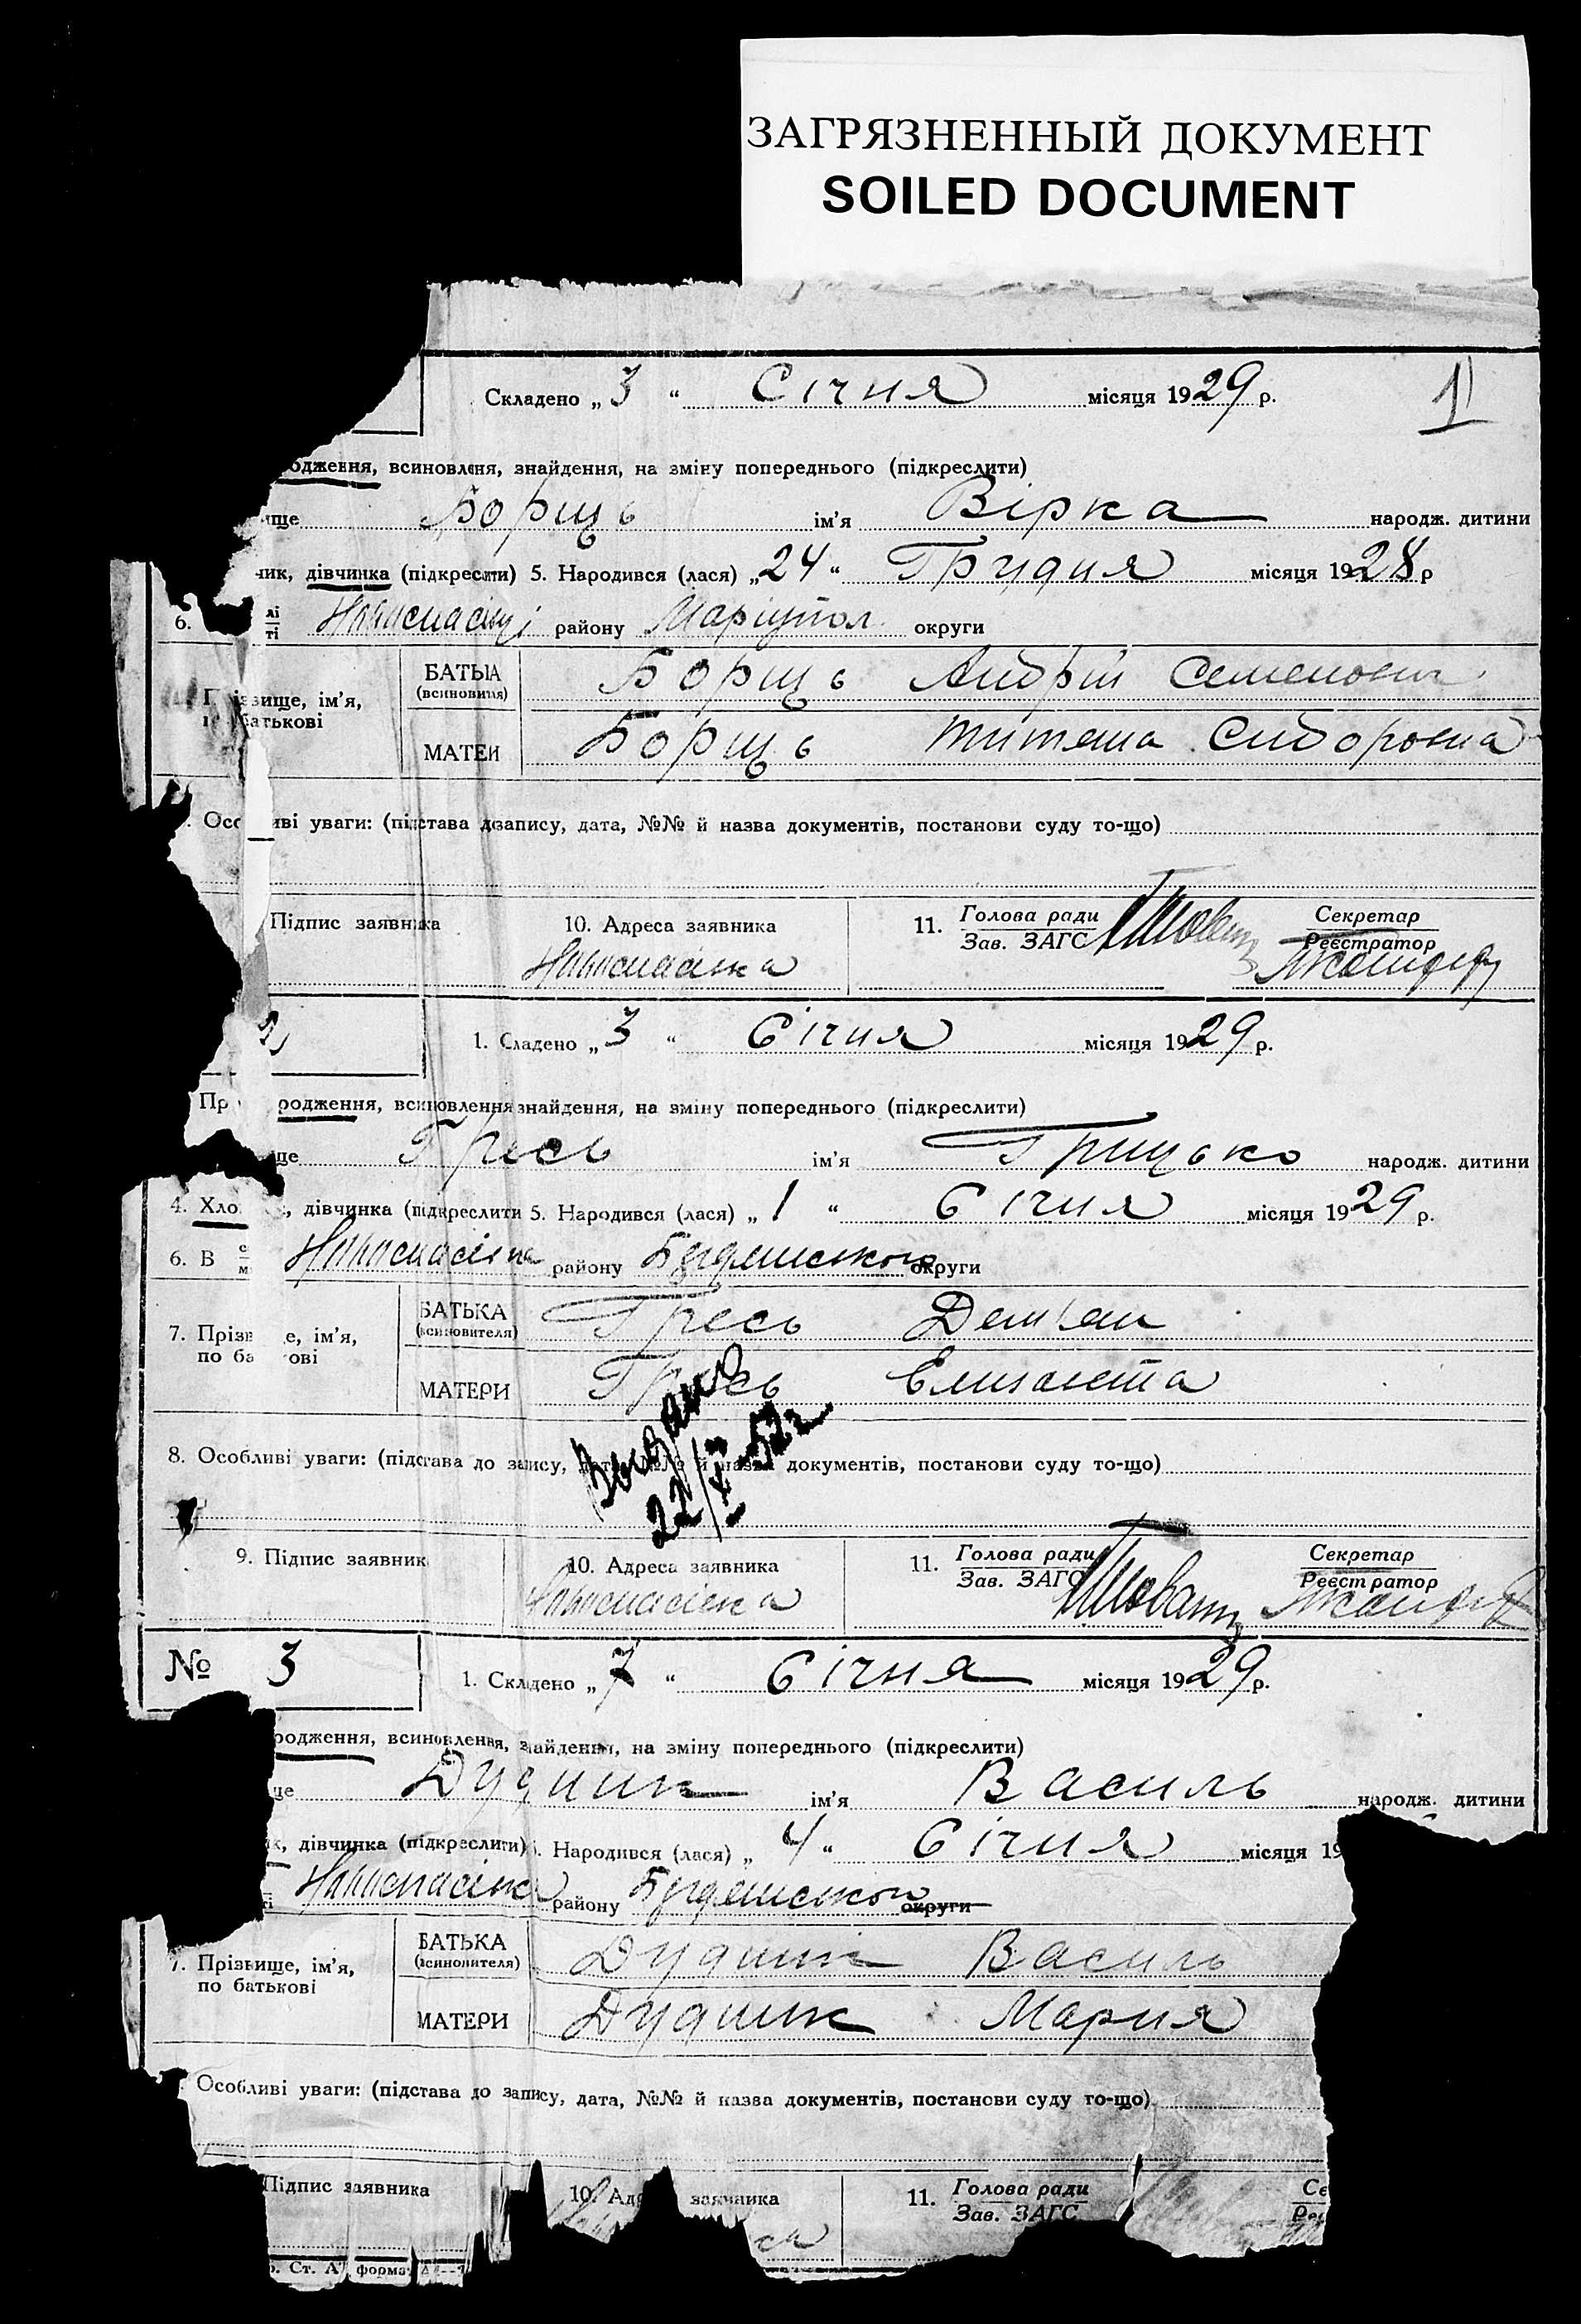 ЗАГРЯЗНЕННЫЙ ДОКУМЕНТ
SOILED DOCUMENT
1
Складено „ 3 “ Січня місяця 1929 р.
одження, всиновлення, знайдення, на зміну попереднього (підкреслити)
ище Борщь ім’я Вірка народж. дитини
чик, дівчинка (підкреслити) 5. Народився (лася) „ 24 “ Грудня місяця 1928 р
6. лі
ті району Маріупол. округи
Прізвище, ім’я,
по батькові
БАТЬКА Борщь Андрій Семенович
МАТЕРИ Борщь Титяна Сидоровна
Особливі уваги: (підстава до запису, дата, №№ й назва документів, постанови суду то-що)
Підпис заявника 10. Адреса заявника 11. Голова ради
Зав. ЗАГС Секретар
Реєстратор
Новоспасівка
2
1. Складено „ 3 “ Січня місяця 1929 р.
Пр родження, всиновлення знайдення, на зміну попереднього (підкреслити)
ще Гресь ім’я Грицько народж. дитини
4. Хло , дівчинка (підкреслити 5. Народився (лася) „ 1 “ Січня місяця 1929 р.
6. В с
м Новоспасівка району Бердянського округи
7. Прізв е, ім’я,
по ба ові
БАТЬКА
(всиновителя) Гресь Дем'ян
МАТЕРИ Гресь Елизавета
Выдано
22/V-52г.
8. Особливі уваги: (підстава до запису, дата, №№ й назва документів, постанови суду то-що)
9. Підпис заявник 10. Адреса заявника 11. Голова ради
Зав. ЗАГС Секретар
Реєстратор
Новоспасівка
№ 3 1. Складено „ 7 “ Січня місяця 1929 р.
родження, всиновлення, знайдення, на зміну попереднього (підкреслити)
ще Дудник ім’я Василь народж. дитини
к, дівчинка (підкреслити) Народився (лася) „ 4 “ Січня місяця 19
Новоспасівка району Бердянського округи
7. Прізвище, ім’я,
по батькові
БАТЬКА
(всиновителя) Дудник Василь
МАТЕРИ Дудник Мария
Особливі уваги: (підстава до запису, дата, №№ й назва документів, постанови суду то-що)
Підпис заявника 10. Ад заявника 11. Голова ради
Зав. ЗАГС Се
Реє
Ст. А форма